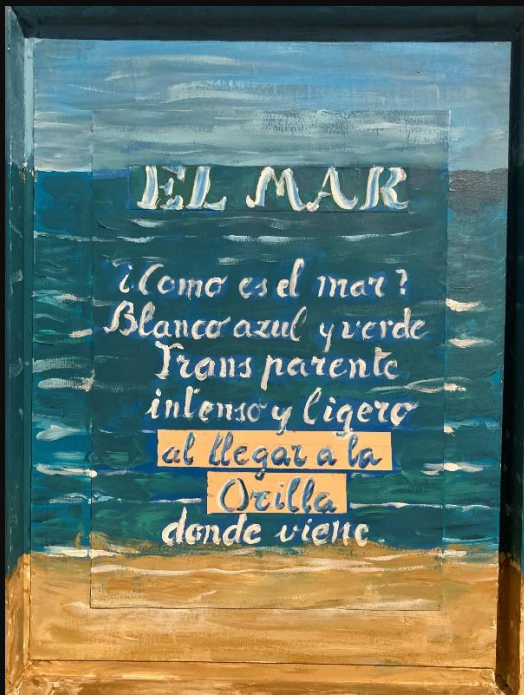 EL MAR
¿Como es el mar?
Blanco azul y verde
Trans parente
intenso y ligero
al llegar a la
Orilla
donde viene